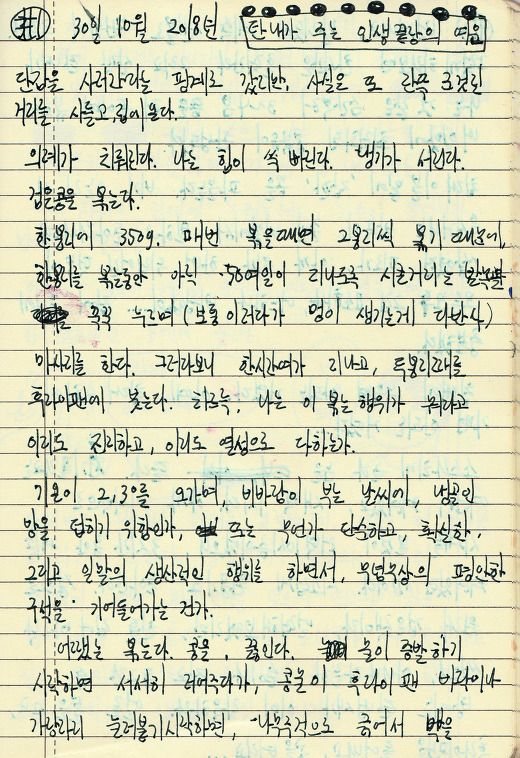 #1 30일 10월 2018년 탄내가 주는 인생끝량의 여유
단감을 사러간다는 핑계로 갔지만, 사실은 또 잔뜩 군것질
거리를 사들고 집에 온다.
의례가 치뤄진다. 나는 힘이 쏙 빠진다. 냉기가 서린다.
검은콩을 볶는다.
한봉지에 350g. 매번 볶을때면 2봉지씩 볶기 때문에,
한봉지를 볶는동안 아직 50여알이 지나도록 시큰거리는
꼭꼭 누르며 (보통 이러다가 멍이 생기는게 다반사)
마사지를 한다. 그러다보니 한시간여가 지나고, 두봉지째를
후라이팬에 붓는다. 하고는, 나는 이 볶는 행위가 뭐라고
이리도 진지하고, 이리도 열성으로 다하는가.
기온이 2,3℃를 오가며, 비바람이 부는 날씨에, 냉골인
방을 덥히기 위함인가, 또는 무언가 단순하고, 확실한,
그리고 일말의 생산적인 행위를 하면서, 무념무상의 평안한
구석을 기어들어가는 건가.
어쨌든 볶는다. 콩을, 끓인다. 물이 증발하기
시작하면 서서히 저어주다가, 콩물이 후라이팬 바닥이나
가장자리 눌러붙기 시작하면, 나무주걱으로 긁어서